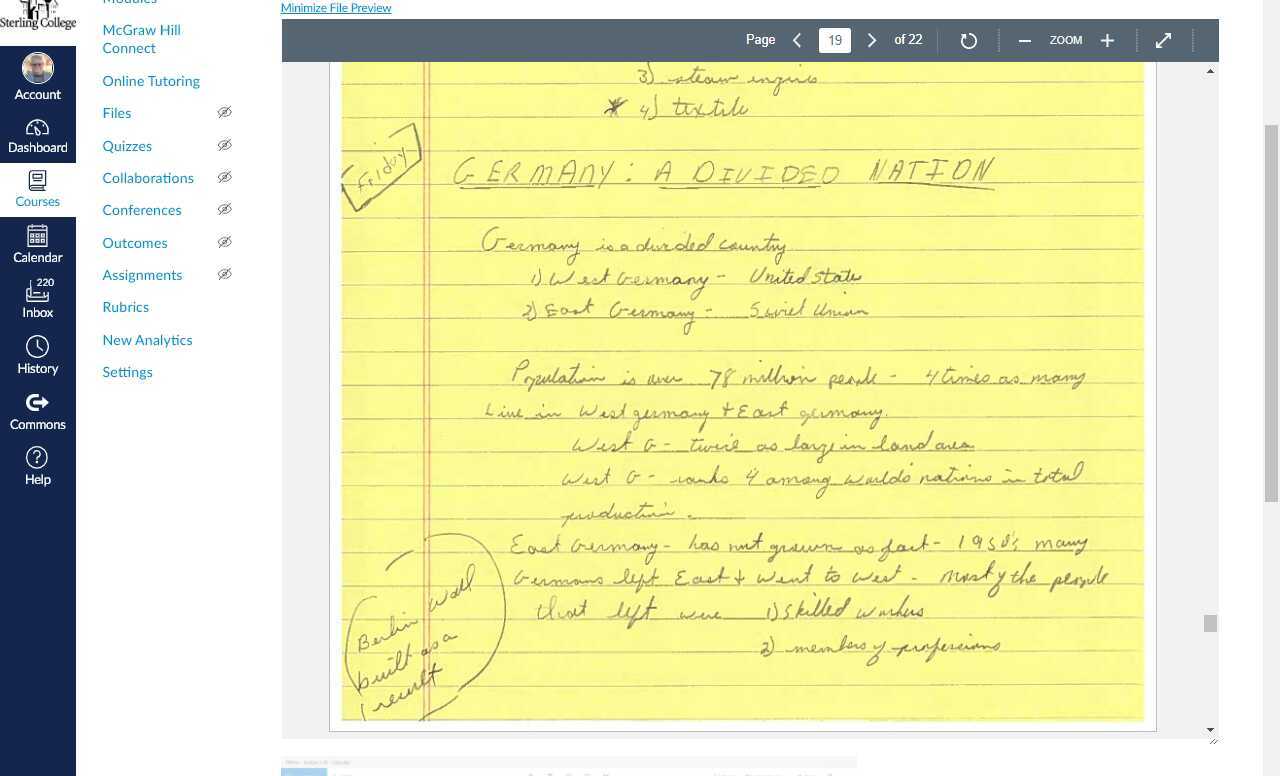 Modules
Sterling College
McGraw Hill
Connect
Online Tutoring
Files
Quizzes
Collaborations
Conferences
Outcomes
Assignments
Rubrics
New Analytics
Settings
Account
Dashboard
Courses
Calendar
220
Inbox
History
Commons
Help
Minimize File Preview
Page 19 of 22 ZOOM
3) steam engine
4) textile
Friday
GERMANY: A DIVIDED NATION
Germany is a divided country
1) West Germany - United States
2) East Germany - Soviet Union
Population is over 78 million people - 4 times as many
Live in West germany + East germany.
West G - twice as large in land area
West G - ranks 4 among world's nations in total
production.
East Germany - has not grown as fast - 1950's many
Germans left East + went to west - most of the people
that left were 1) skilled workers
2) members of professions
Berlin wall
built as a
result